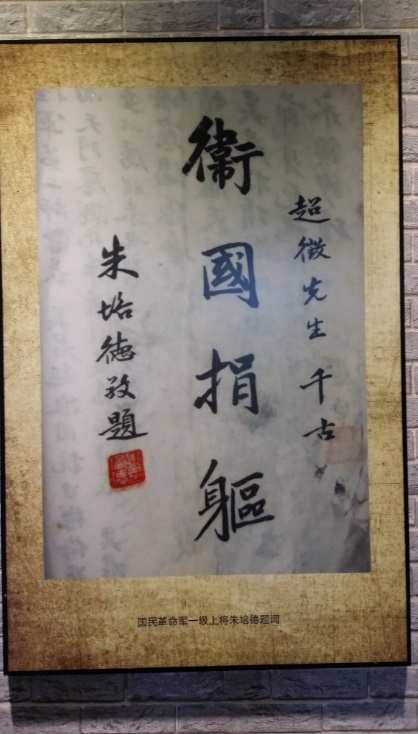 超徵先生千古
衛國捐軀
朱培德敬題
国民革命军一级上将朱培德题词